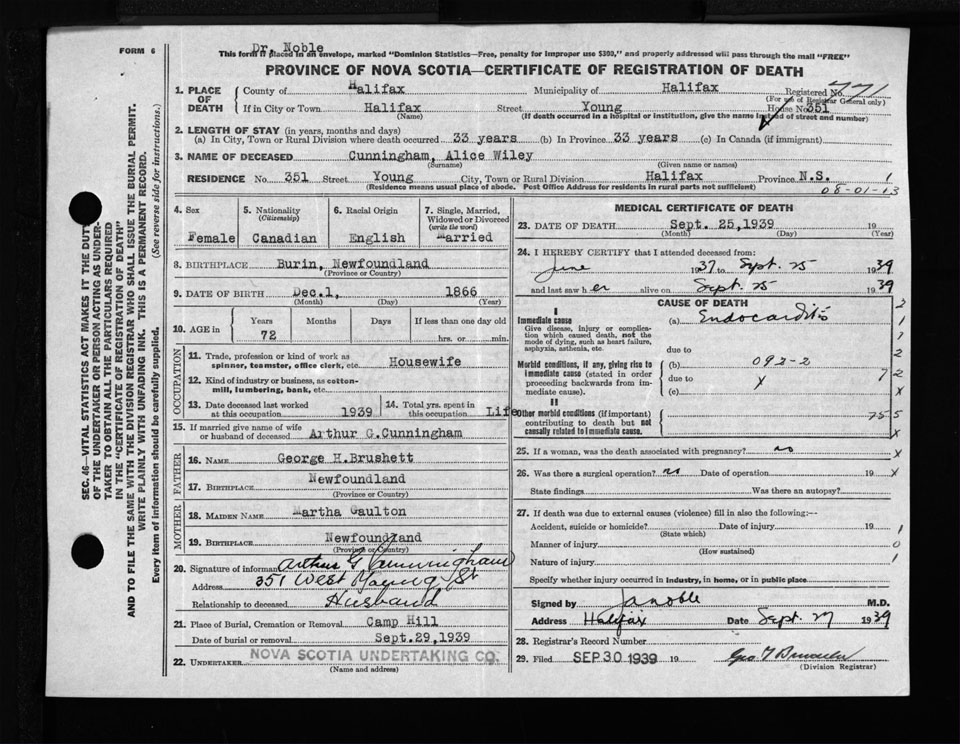 FORM 6
Dr. Noble
This form if placed in an envelope, marked "Dominion Statistics—Free, penalty for improper use $300," and properly addressed will pass through the mail "FREE"
PROVINCE OF NOVA SCOTIA—CERTIFICATE OF REGISTRATION OF DEATH
1. PLACE OF DEATH County of Halifax Municipality of Halifax Registered No. 771
(For use of Registrar General only)
If in City or Town Halifax Street Young House No. 351
(Name) (If death occurred in a hospital or institution, give the name instead of street and number)
2. LENGTH OF STAY (in years, months and days)
(a) In City, Town or Rural Division where death occurred 33 years (b) In Province 33 years (c) In Canada (if immigrant)
3. NAME OF DECEASED Cunningham, Alice Wiley
(Surname) (Given name or names)
RESIDENCE No. 351 Street Young City, Town or Rural Division Halifax Province N.S. 1
(Residence means usual place of abode. Post Office Address for residents in rural parts not sufficient) 08-01-13
4. Sex 5. Nationality (Citizenship) 6. Racial Origin 7. Single, Married, Widowed or Divorced (write the word)
Female Canadian English Married
8. BIRTHPLACE Burin, Newfoundland
(Province or Country)
9. DATE OF BIRTH Dec.1, 1866
(Month) (Day) (Year)
10. AGE in Years Months Days If less than one day old
72 hrs. or min.
OCCUPATION
11. Trade, profession or kind of work as spinner, teamster, office clerk, etc. Housewife
12. Kind of industry or business, as cotton-mill, lumbering, bank, etc.
13. Date deceased last worked at this occupation 1939 14. Total yrs. spent in this occupation Life
15. If married give name of wife or husband of deceased Arthur G.Cunningham
FATHER
16. NAME George H.Brushett
17. BIRTHPLACE Newfoundland
(Province or Country)
MOTHER
18. MAIDEN NAME Martha Gaulton
19. BIRTHPLACE Newfoundland
(Province or Country)
20. Signature of informant Arthur G Cunningham
Address 351 West Young St
Relationship to deceased Husband
21. Place of Burial, Cremation or Removal Camp Hill
Date of burial or removal Sept.29,1939
22. UNDERTAKER NOVA SCOTIA UNDERTAKING CO.
(Name and address)
MEDICAL CERTIFICATE OF DEATH
23. DATE OF DEATH Sept. 25,1939 19
(Month) (Day) (Year)
24. I HEREBY CERTIFY that I attended deceased from:
June 1937 to Sept. 25 1939
and last saw her alive on Sept. 25 1939
CAUSE OF DEATH
I
Immediate cause (a) Endocarditis
Give disease, injury or complication which caused death, not the mode of dying, such as heart failure, asphyxia, asthenia, etc.
due to
Morbid conditions, if any, giving rise to immediate cause (stated in order proceeding backwards from immediate cause). (b) 092-2
due to X
(c)
II
Other morbid conditions (if important) contributing to death but not causally related to immediate cause.
2
1
1
2
7 2
X
75 5
X
25. If a woman, was the death associated with pregnancy? no
26. Was there a surgical operation? no Date of operation 19 X
State findings Was there an autopsy?
27. If death was due to external causes (violence) fill in also the following:—
Accident, suicide or homicide? Date of injury 19 1
(State which)
Manner of injury 0
(How sustained)
Nature of injury 1
Specify whether injury occurred in industry, in home, or in public place
Signed by J A Noble M.D.
Address Halifax Date Sept. 27 1939
28. Registrar's Record Number
29. Filed SEP 30 1939 19
(Division Registrar)
SEC. 46—VITAL STATISTICS ACT MAKES IT THE DUTY
OF THE UNDERTAKER OR PERSON ACTING AS UNDER-
TAKER TO OBTAIN ALL THE PARTICULARS REQUIRED
IN THE "CERTIFICATE OF REGISTRATION OF DEATH"
AND TO FILE THE SAME WITH THE DIVISION REGISTRAR WHO SHALL ISSUE THE BURIAL PERMIT.
WRITE PLAINLY WITH UNFADING INK. THIS IS A PERMANENT RECORD.
Every item of information should be carefully supplied. (See reverse side for instructions.)